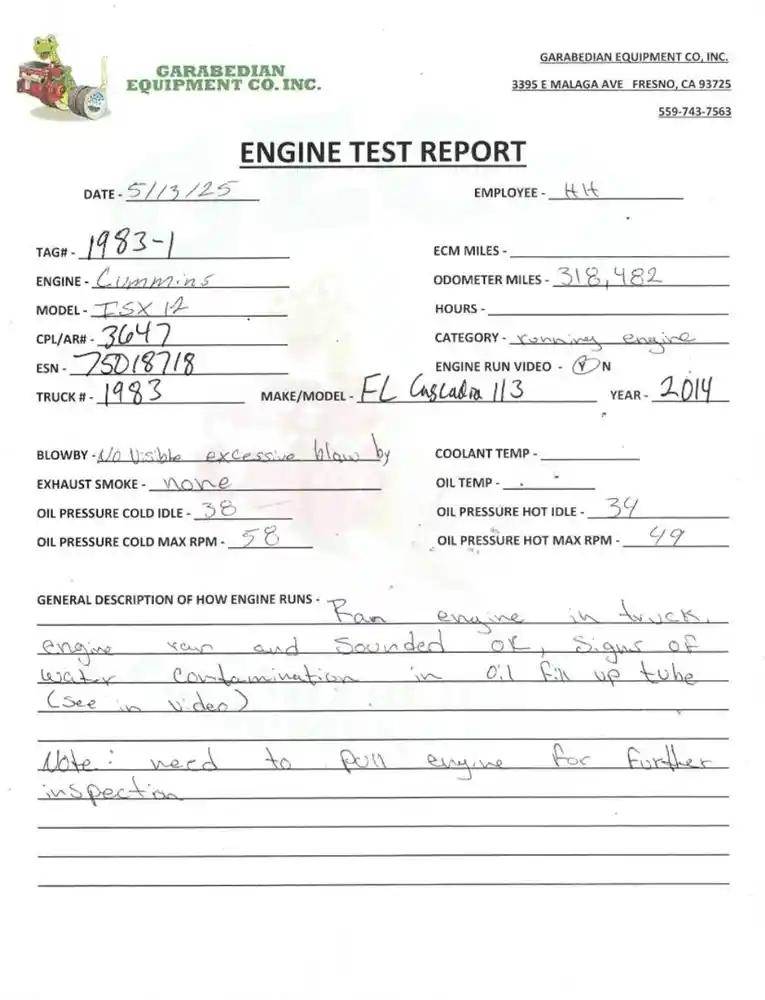 GARABEDIAN
EQUIPMENT CO. INC.
GARABEDIAN EQUIPMENT CO, INC.
3395 E MALAGA AVE FRESNO, CA 93725
559-743-7563
ENGINE TEST REPORT
DATE - 5/13/25 EMPLOYEE - HH
TAG# - 1983-1 ECM MILES -
ENGINE - Cummins ODOMETER MILES - 318,482
MODEL - ISX 12 HOURS -
CPL/AR# - 3647 CATEGORY - running engine
ESN - 75018718 ENGINE RUN VIDEO - Y N
TRUCK # - 1983 MAKE/MODEL - FL Cascadia 113 YEAR - 2014
BLOWBY - No Visible excessive blow by COOLANT TEMP -
EXHAUST SMOKE - none OIL TEMP -
OIL PRESSURE COLD IDLE - 38 OIL PRESSURE HOT IDLE - 34
OIL PRESSURE COLD MAX RPM - 58 OIL PRESSURE HOT MAX RPM - 49
GENERAL DESCRIPTION OF HOW ENGINE RUNS - Ran engine in truck,
engine ran and Sounded OK, Signs of
water contamination in Oil fill up tube
(see in video)
Note: need to pull engine for further
inspection